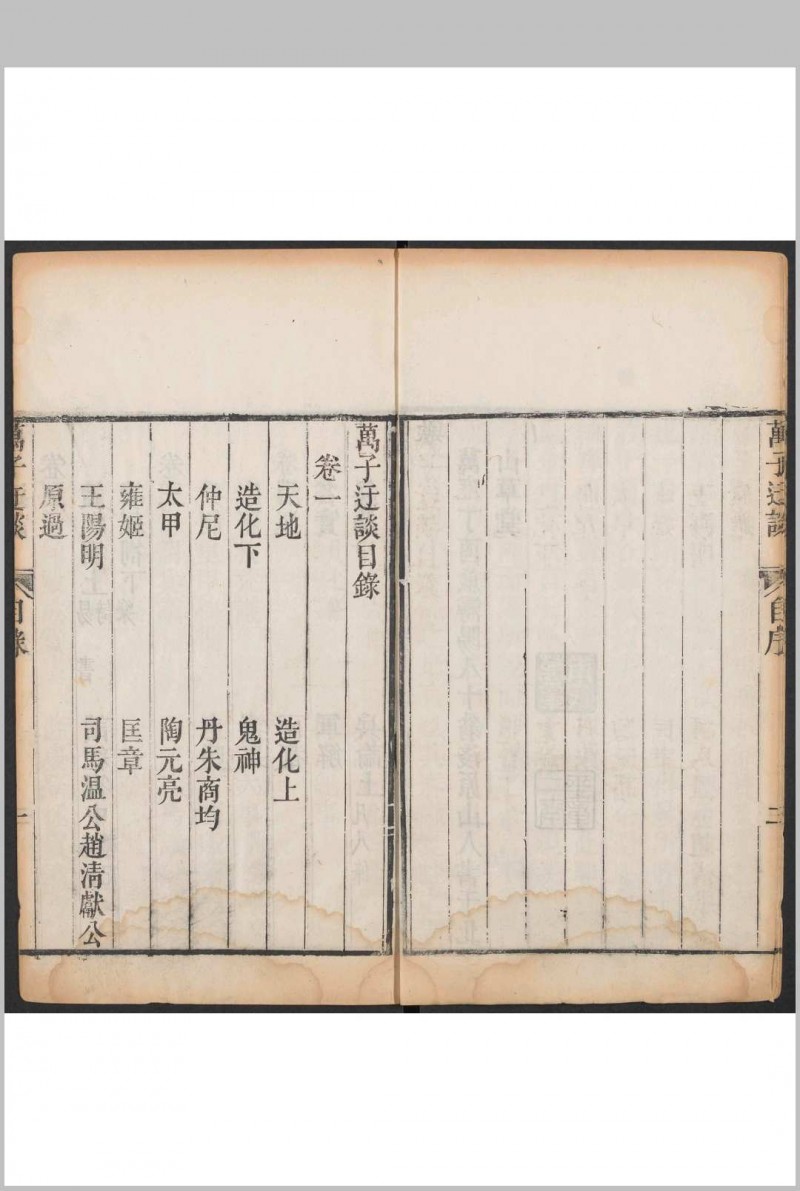 萬子迂談
自序
三
萬子迂談目錄
卷一
天地 造化上
造化下 鬼神
仲尼 丹朱商均
太甲 陶元亮
雍姬 匡章
王陽明 司馬温公趙清獻公
原過
萬子迂談
目錄
一